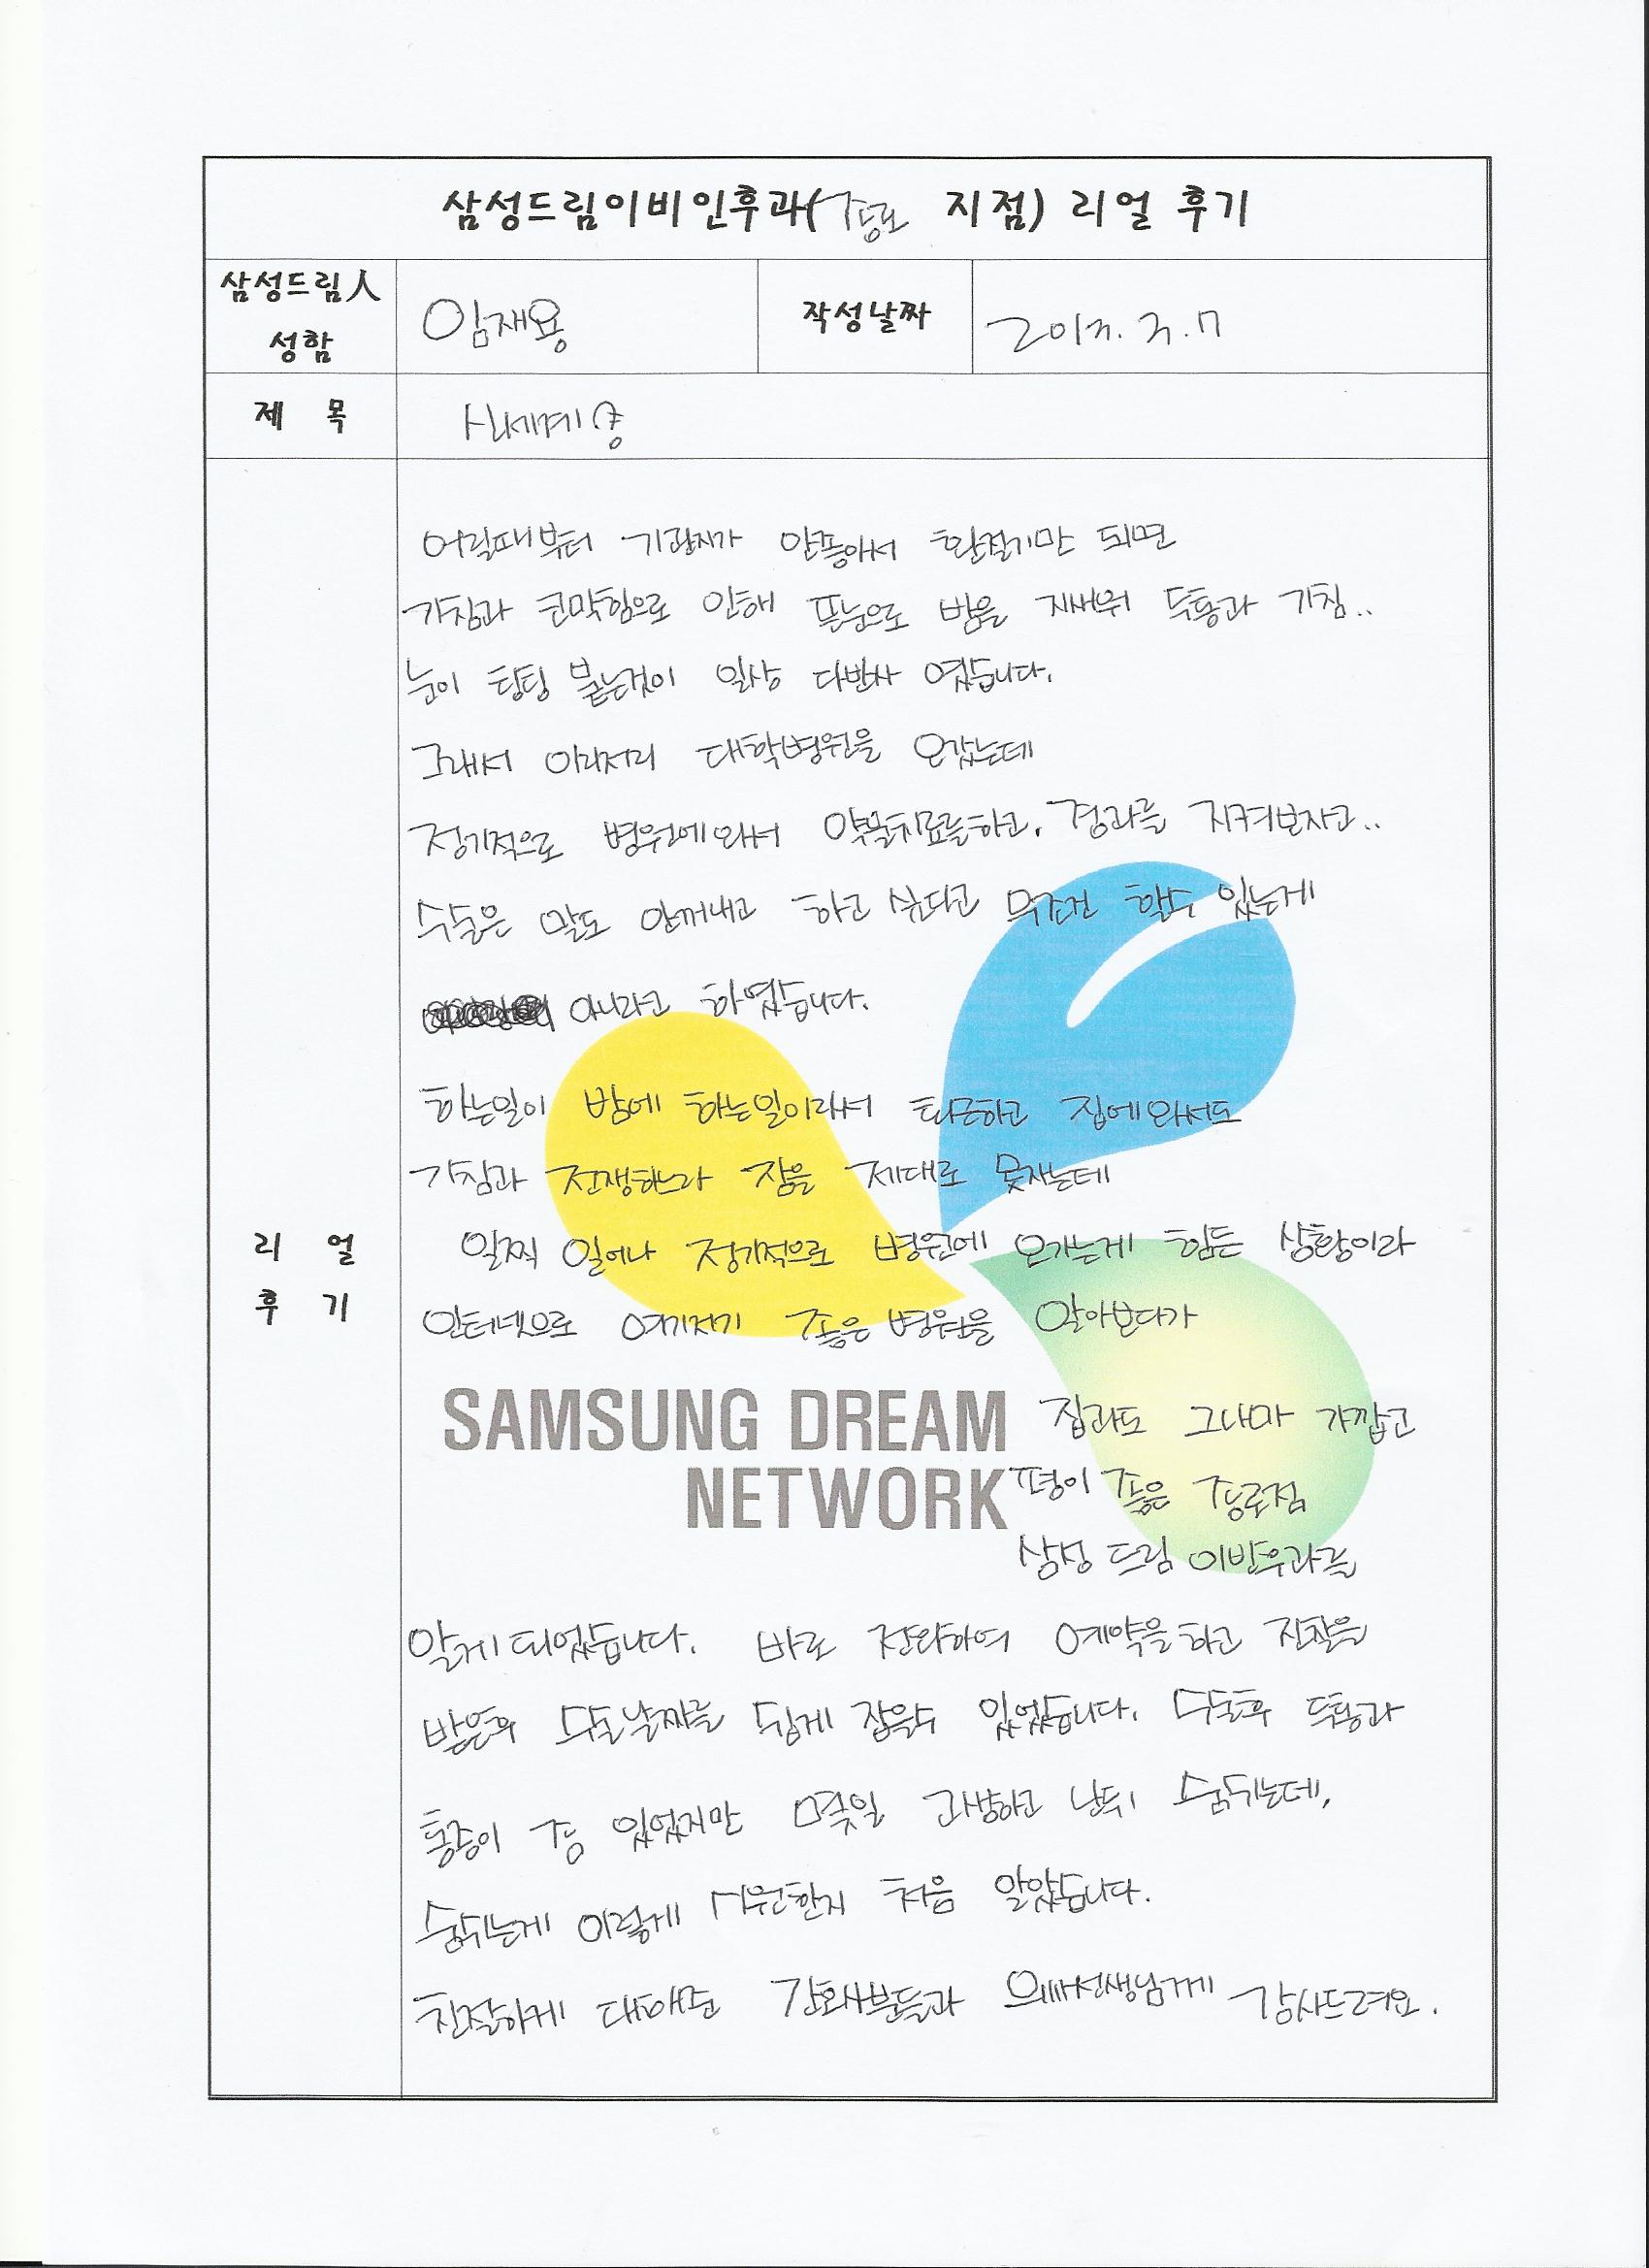 삼성드림이비인후과(종로 지점) 리얼 후기
삼성드림人
성함
임재용
작성날짜
제 목
신세계 ㅎ
어릴때부터 기관지가 안좋아서 환절기만 되면
기침과 코막힘으로 인해 뜬눈으로 밤을 지새워 두통과 기침..
눈이 팅팅 붙는것이 일상 다반사 였습니다.
그래서 이리저리 대학병원을 오갔는데
정기적으로 병원에와서 약물치료를하고. 경과를 지켜보자고..
수술은 말도 안꺼내고 하고 싶다고 무조건 할수 있는게
아니라고 하였습니다.
하는일이 밤에 하는일이라서 퇴근하고 집에와서도
기침과 전쟁하느라 잠을 제대로 못자는데
일찍 일어나 정기적으로 병원에 오가는게 힘든 상황이라
인터넷으로 여기저기 좋은 병원을 알아보다가
SAMSUNG DREAM
NETWORK
집과도 그나마 가깝고
평이 좋은 종로점
삼성 드림 이빈후과를
알게되었습니다. 바로 전화하여 예약을하고 진찰을
받은후 수술날짜를 쉽게 잡을수 있었습니다. 수술후 두통과
통증이 좀 있었지만 몇일 고생하고 난뒤 숨쉬는데,
숨쉬는게 이렇게 시원한지 처음 알았습니다.
친절하게 대해준 간호사분들과 의사선생님께 감사드려요.
리 얼
후 기